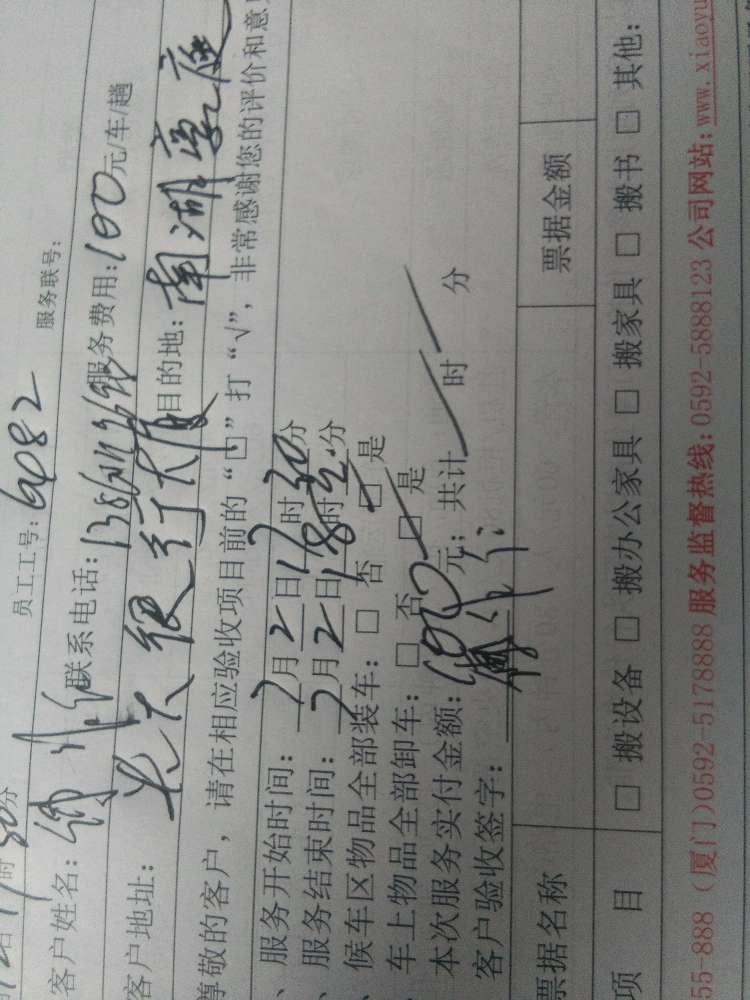 时30分
员工工号:6082 服务联号:
客户姓名: 联系电话: 服务费用:100元/车/趟
客户地址: 大厦 目的地:南湖豪庭
尊敬的客户，请在相应验收项目前的“□”打“√”，非常感谢您的评价和意见
、服务开始时间:7月2日17时30分
、服务结束时间:7月2日18时 分
、候车区物品全部装车:□否□是
、车上物品全部卸车:□否□是
本次服务实付金额: 元;共计 时 分
客户验收签字:
票据名称 票据金额
项目 □搬设备□搬办公家具□搬家具□搬书□其他:
55-888 (厦门)0592-5178888 服务监督热线:0592-5888123 公司网站:www.xiaoyu